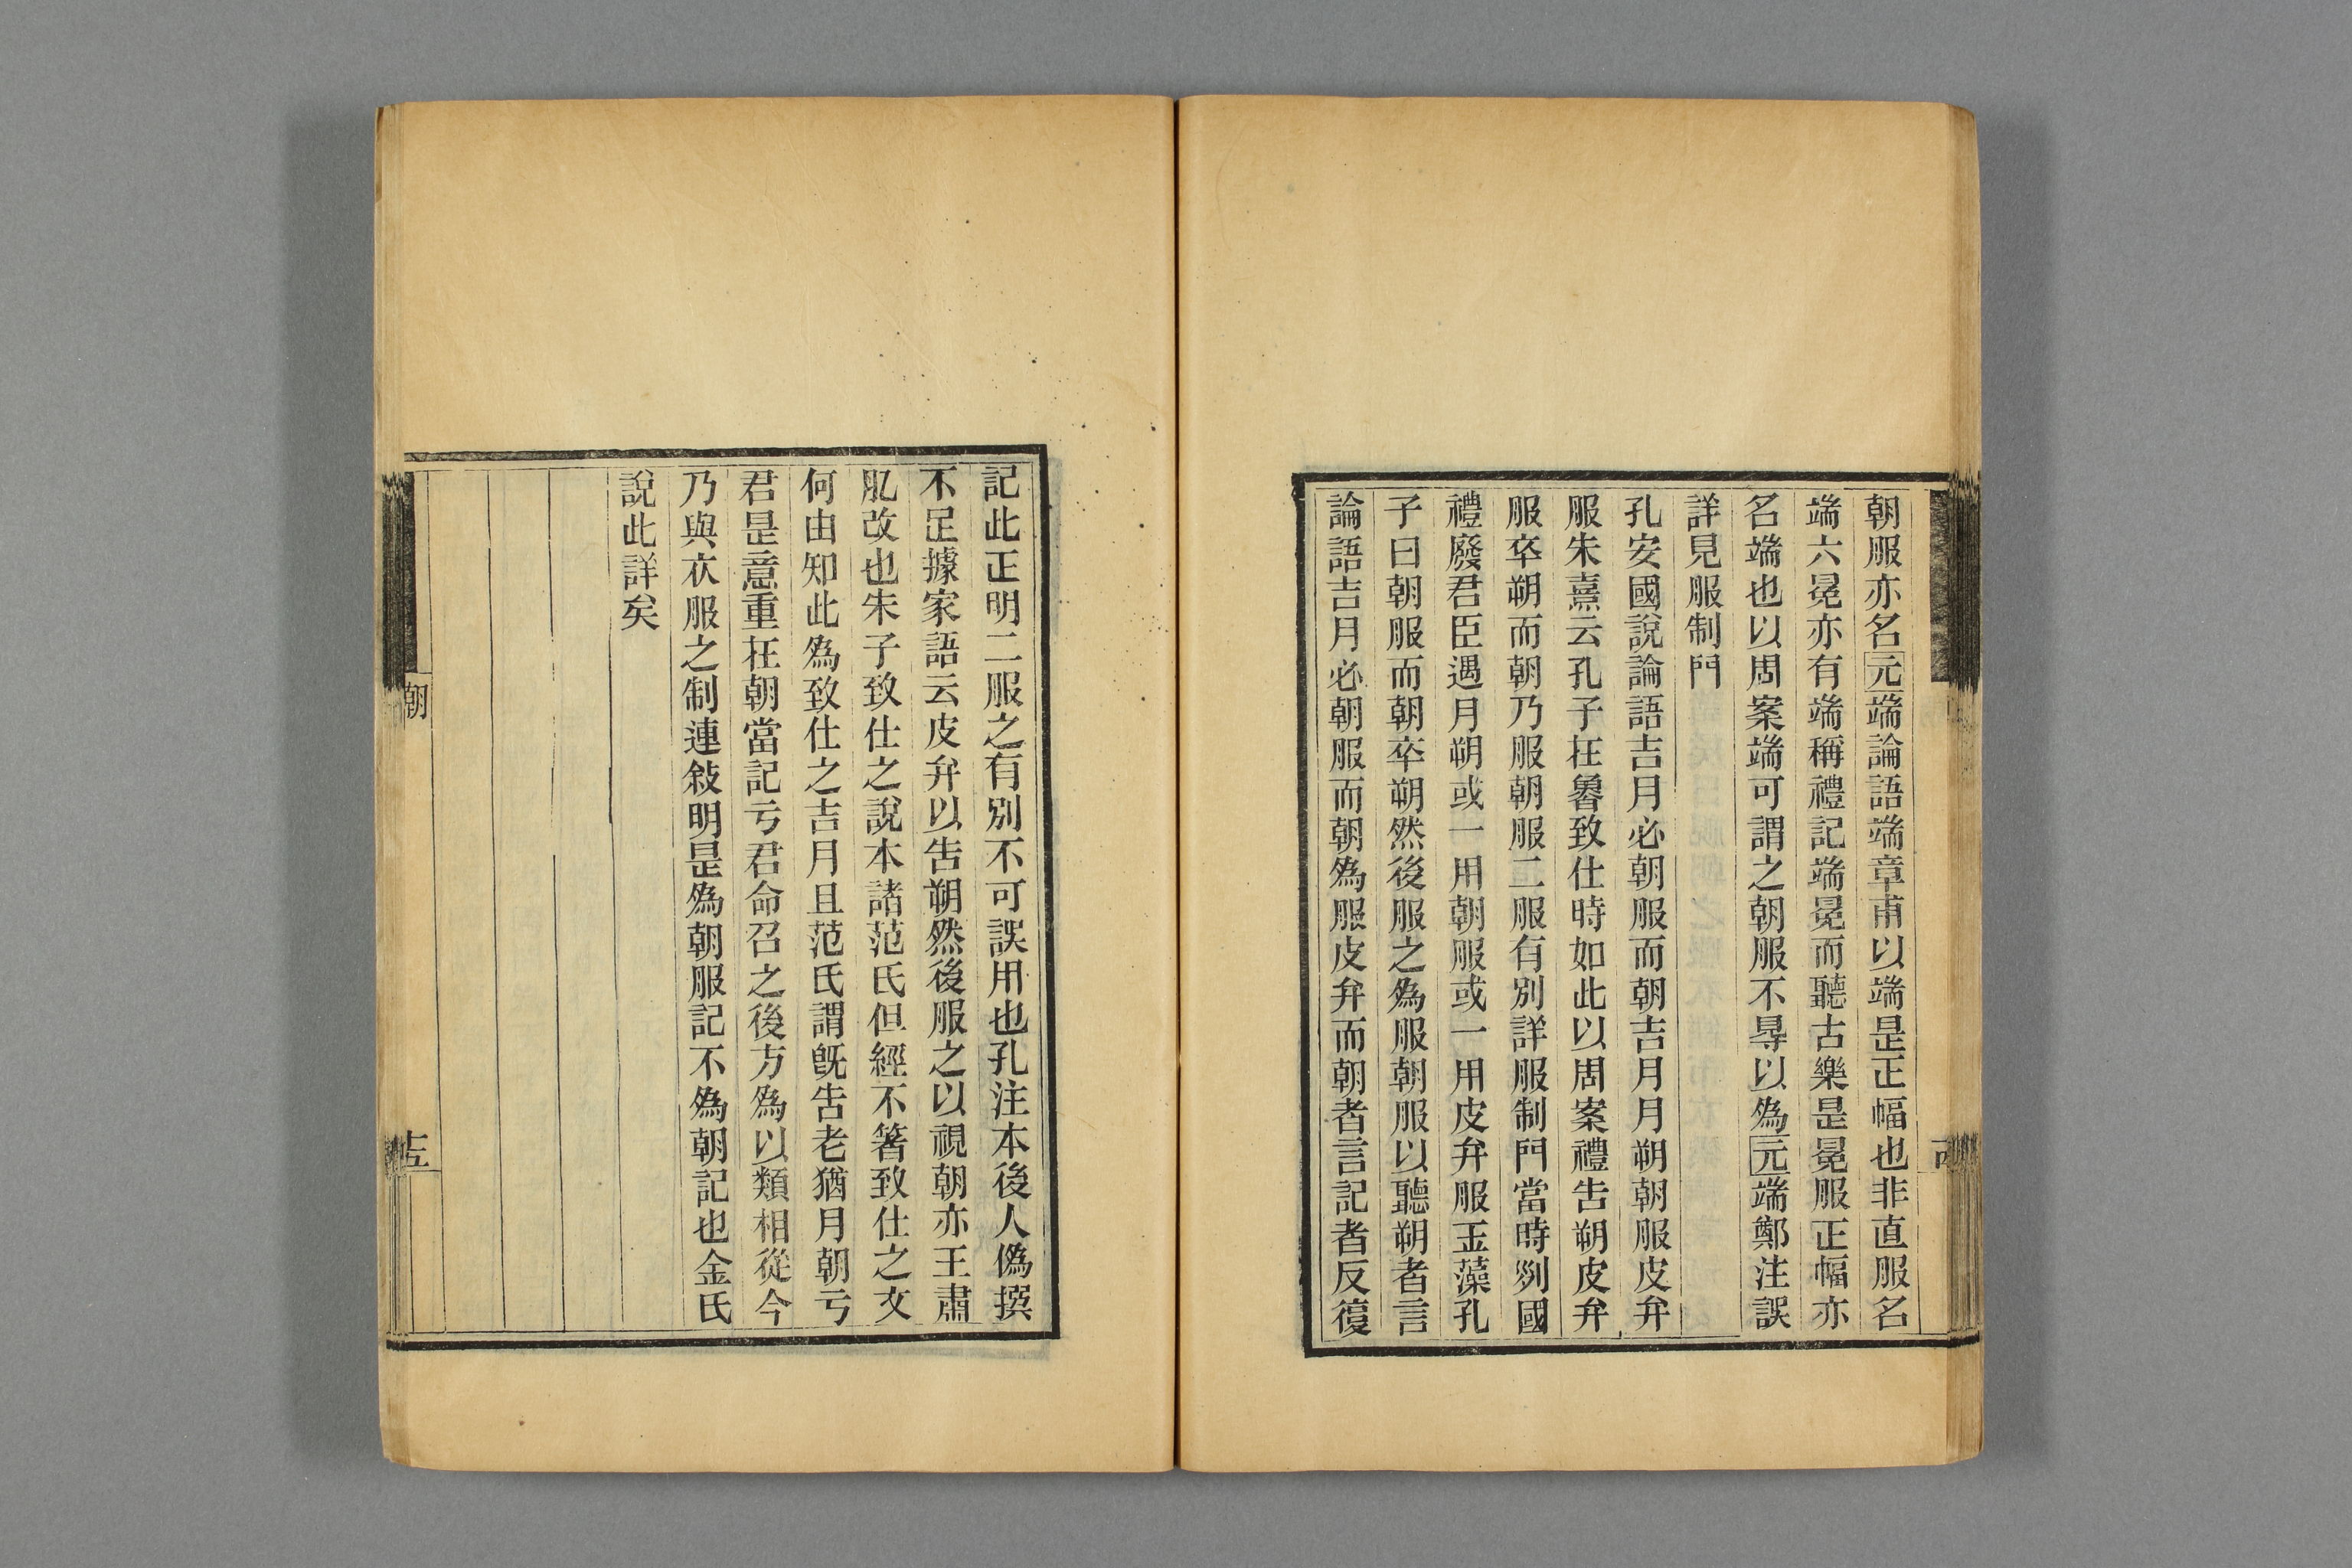 朝服亦名元端論語端章甫以端是正幅也非直服名
端六冕亦有端稱禮記端冕而聽古樂是冕服正幅亦
名端也以周案端可謂之朝服不㝵以為元端鄭注誤
詳見服制門
孔安國說論語吉月必朝服而朝吉月月朔朝服皮弁
服朱熹云孔子在魯致仕時如此以周案禮告朔皮弁
服卒朔而朝乃服朝服二服有別詳服制門當時列國
禮廢君臣遇月朔或一用朝服或一用皮弁服玉藻孔
子曰朝服而朝卒朔然後服之為服朝服以聽朔者言
論語吉月必朝服而朝為服皮弁而朝者言記者反復
記此正明二服之有別不可誤用也孔注本後人偽撰
不足據家語云皮弁以告朔然後服之以視朝亦王肅
肊改也朱子致仕之說本諸范氏但經不箸致仕之文
何由知此為致仕之吉月且范氏謂旣告老猶月朝亏
君是意重在朝當記亏君命召之後方為以類相從今
乃與衣服之制連敍明是為朝服記不為朝記也金氏
說此詳矣
朝